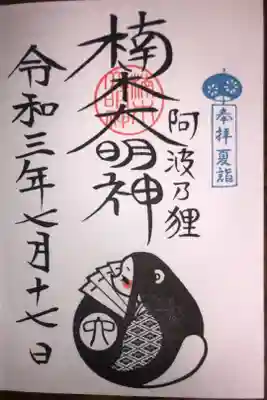 奉拝夏詣
阿波乃狸
楠木大明神
令和三年七月十七日
六